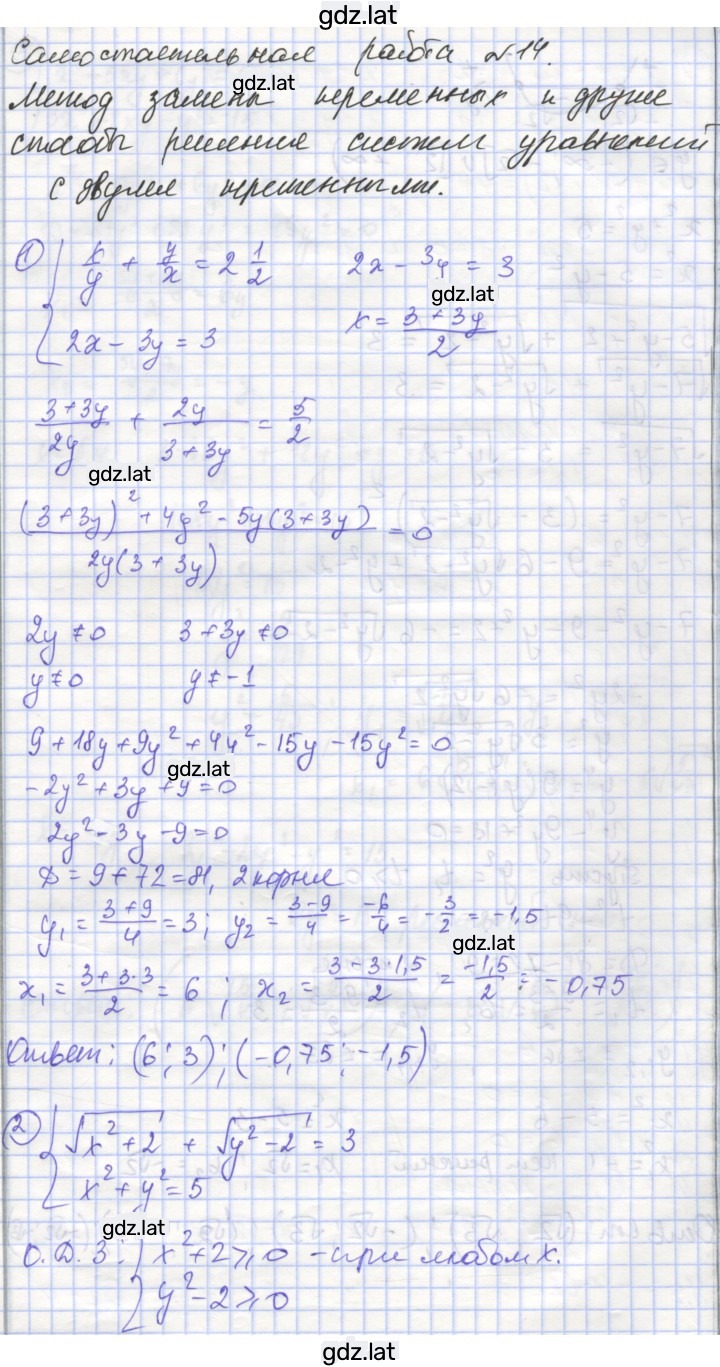 gdz.lat
Самостоятельная работа №14.
gdz.lat
Метод замены переменных и другие
способы решения систем уравнений
с двумя переменными.
① { x/y + y/x = 2 1/2     2x - 3y = 3
gdz.lat
2x - 3y = 3     x = (3 + 3y)/2
(3+3y)/2y + 2y/(3+3y) = 5/2
gdz.lat
((3+3y)² + 4y² - 5y(3+3y))/(2y(3+3y)) = 0
2y ≠ 0     3+3y ≠ 0
y ≠ 0     y ≠ -1
9 + 18y + 9y² + 4y² - 15y - 15y² = 0
gdz.lat
-2y² + 3y + 9 = 0
2y² - 3y - 9 = 0
D = 9 + 72 = 81, 2 корня
y₁ = (3+9)/4 = 3; y₂ = (3-9)/4 = -6/4 = -3/2 = -1,5
gdz.lat
x₁ = (3+3·3)/2 = 6 ; x₂ = (3-3·1,5)/2 = -1,5/2 = -0,75
Ответ: (6; 3); (-0,75; -1,5)
② { √(x²+2) + √(y²-2) = 3
x² + y² = 5
gdz.lat
О.Д.З: { x²+2 ⩾ 0 - при любом x.
y²-2 ⩾ 0
gdz.lat